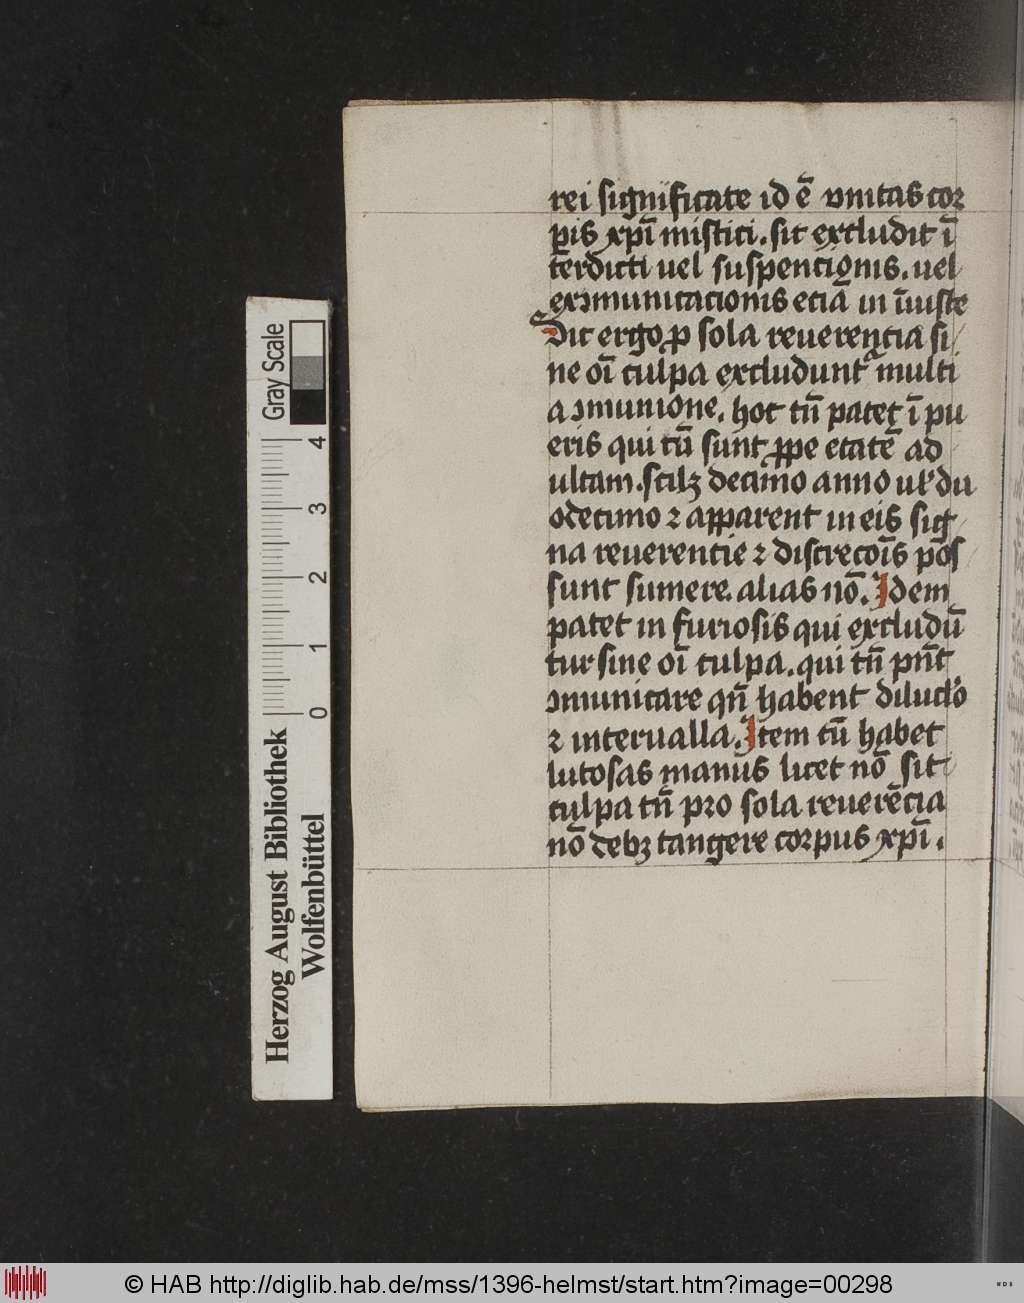 rei significate id ē vnitas cor
ꝑis xp̄i mistici. sit excludit ī
terdicti uel suspencionis. uel
exↄmunicacionis eciā in īiuste
Sic ergo ꝓ sola reuerencia si
ne oī culpa excludunt᷑ multi
a ↄmunione. hoc tn̄ patet ī pu
eris qui cū sunt ꝓpe etatē ad
ultam. scilꝫ decimo anno ul᷑ du
odecimo ⁊ apparent in eis sig
na reuerencie ⁊ discrecoīs pōs
sunt sumere. alias nō. Idem
patet in furiosis qui excludū
tur sine oī culpa. qui tn̄ pn̄t
ↄmunicare qn̄ habent dilucīo
⁊ interualla. Item cū habet
lutosas manus licet nō sit
culpa tn̄ pro sola reuerēcia
nō debꝫ tangere corpus xp̄i.
Gray Scale
4 3 2 1 0
Herzog August Bibliothek
Wolfenbüttel
© HAB http://diglib.hab.de/mss/1396-helmst/start.htm?image=00298